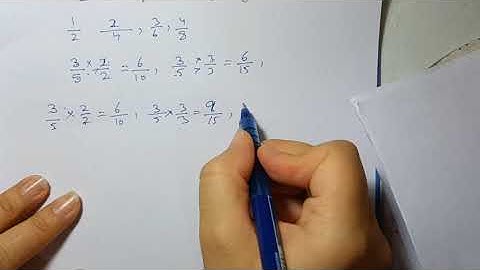 1/2 2/4 , 3/6 , 4/8
3/5 × 2/2 = 6/10 , 3/5 ÷ 3/3 = 6/15 ,
3/5 × 2/2 = 6/10 , 3/5 × 3/3 = 9/15 ,